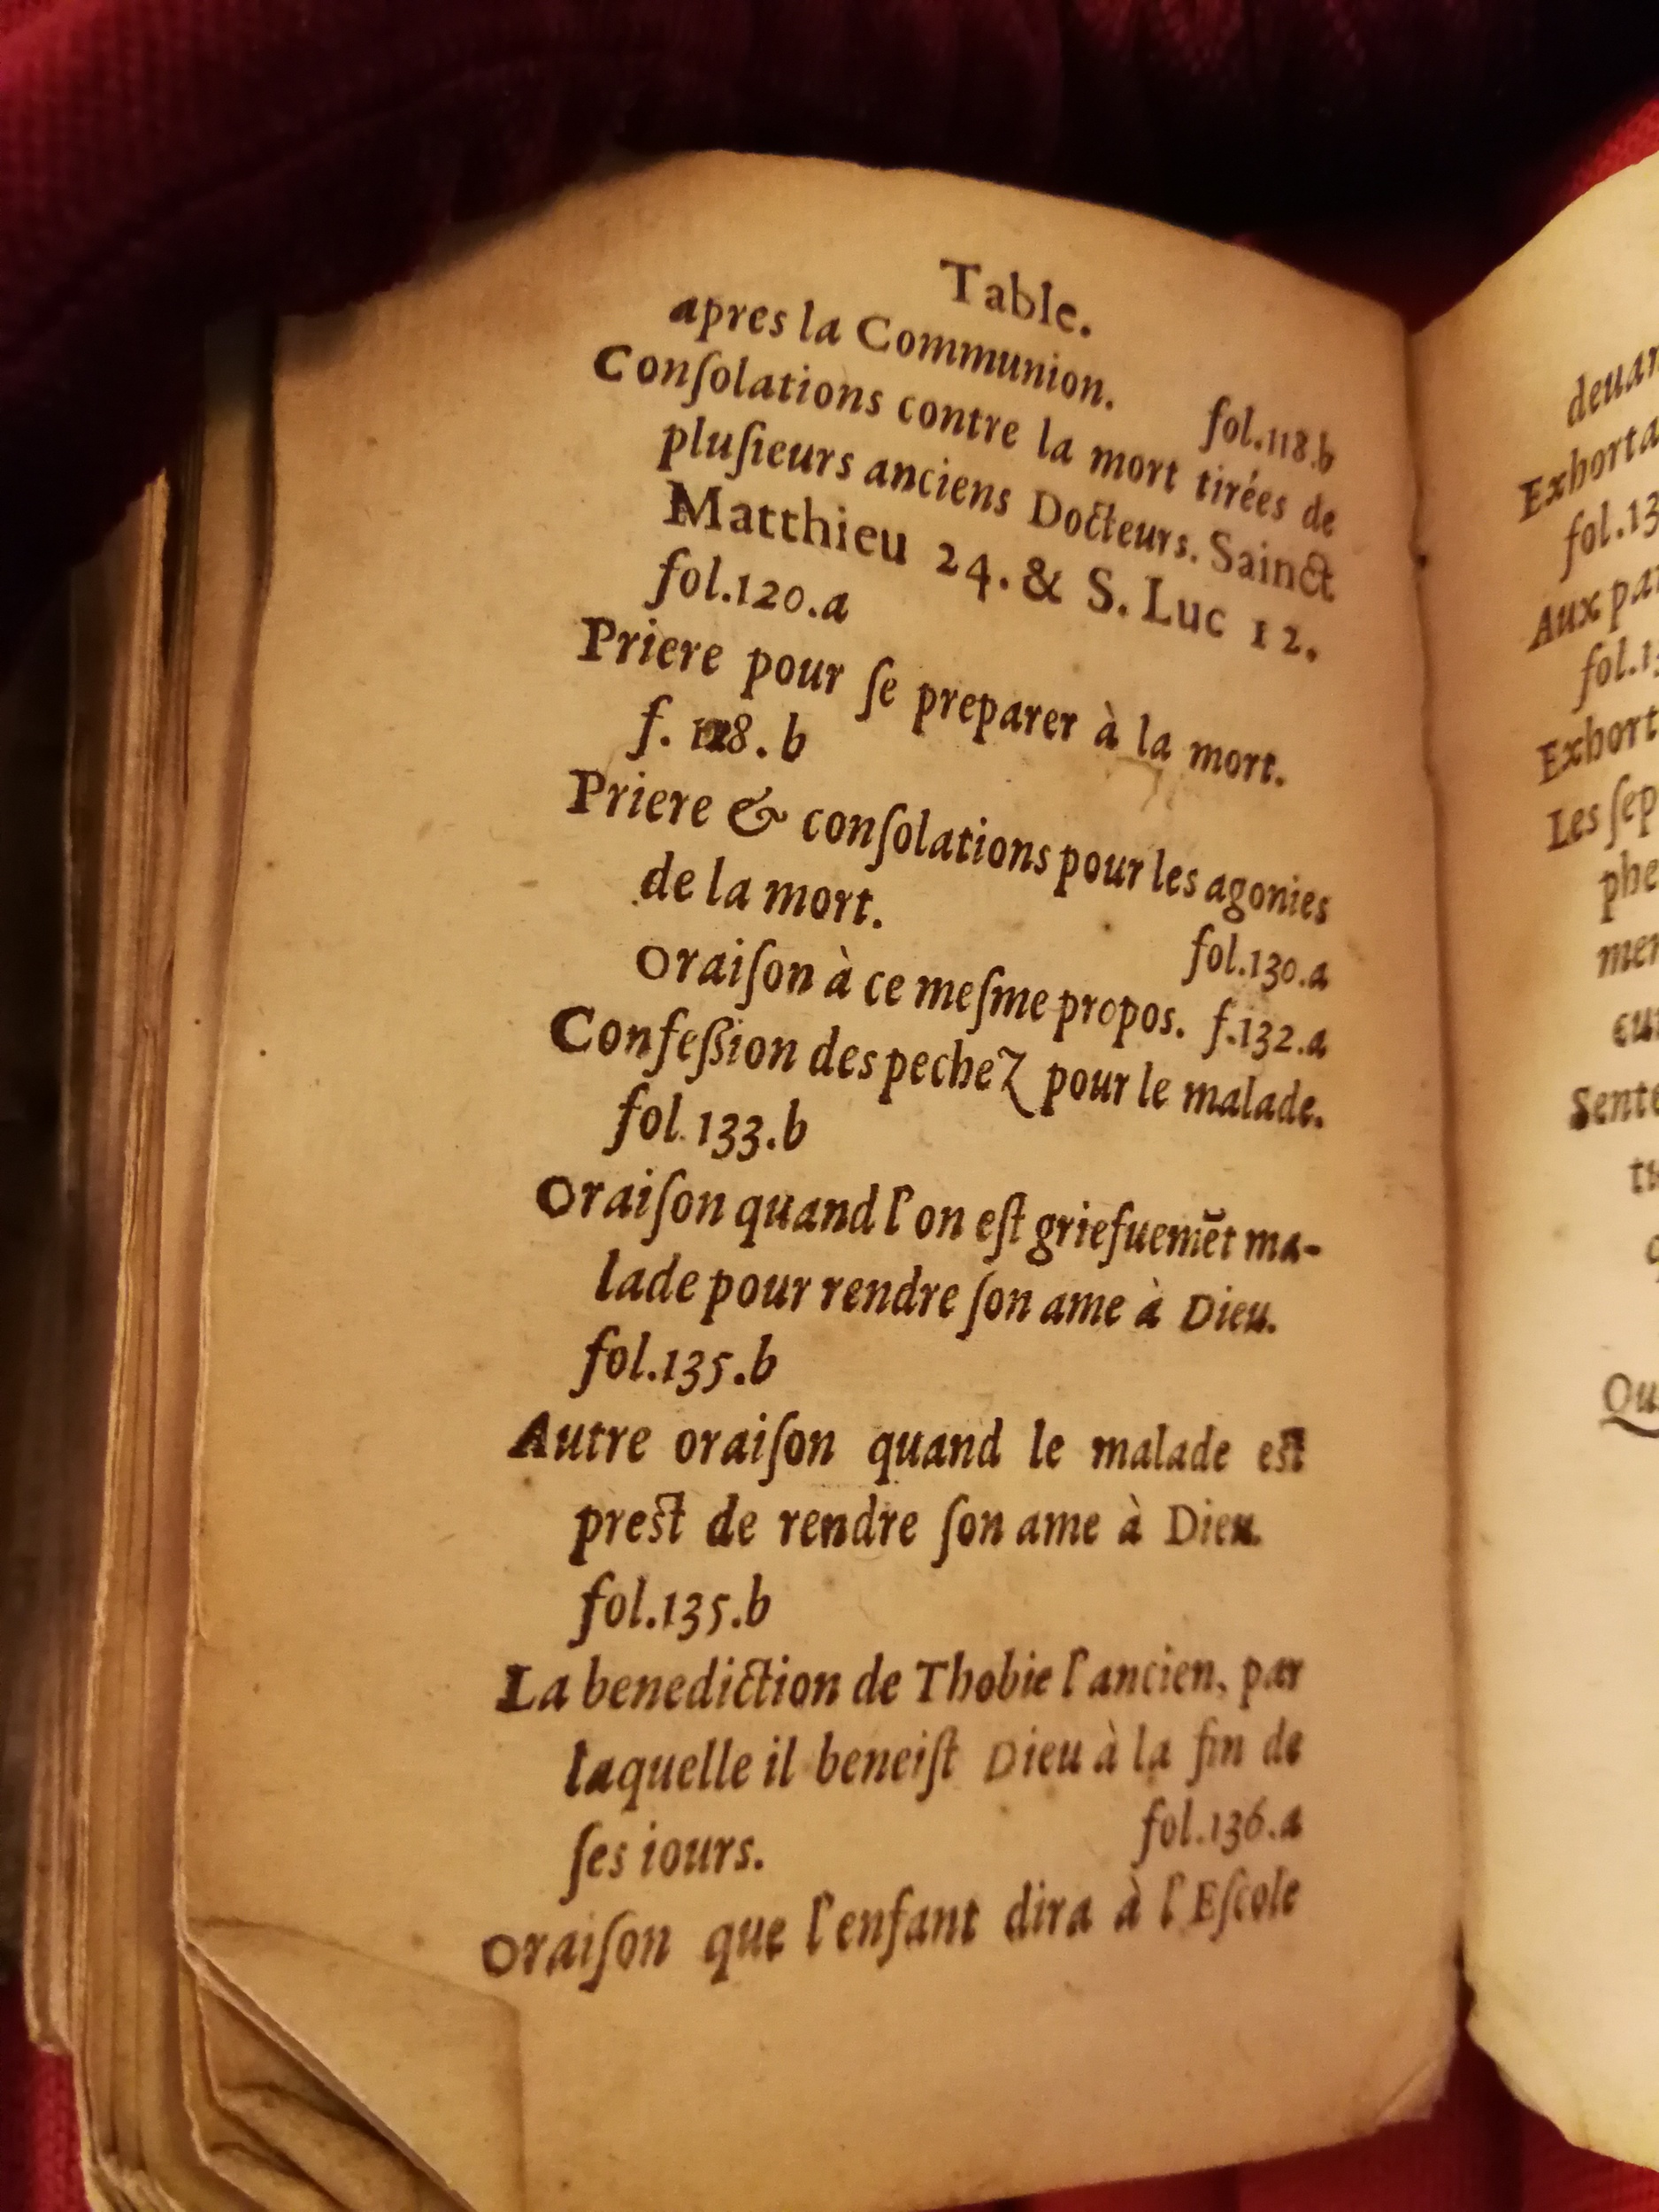 Table.
apres la Communion. fol.118.b
Conſolations contre la mort tirées de
pluſieurs anciens Docteurs. Sainct
Matthieu 24. & S. Luc 12.
fol.120.a
Priere pour ſe preparer à la mort.
f. 128. b
Priere & conſolations pour les agonies
de la mort. fol.130.a
Oraiſon à ce meſme propos. f.132.a
Confeſſion des pechez pour le malade.
fol.133.b
Oraiſon quand l'on eſt griefuemẽt ma-
lade pour rendre ſon ame à Dieu.
fol.135.b
Autre oraiſon quand le malade eſt
preſt de rendre ſon ame à Dieu.
fol.135.b
La benediction de Thobie l'ancien, par
laquelle il beneiſt Dieu à la fin de
ſes iours. fol.136.a
Oraiſon que l'enfant dira à l'Eſcole
deuan
Exhorta
fol.13
Aux par
fol.13
Exhort
Les ſep
phe
mer
eur
Sente
Qu